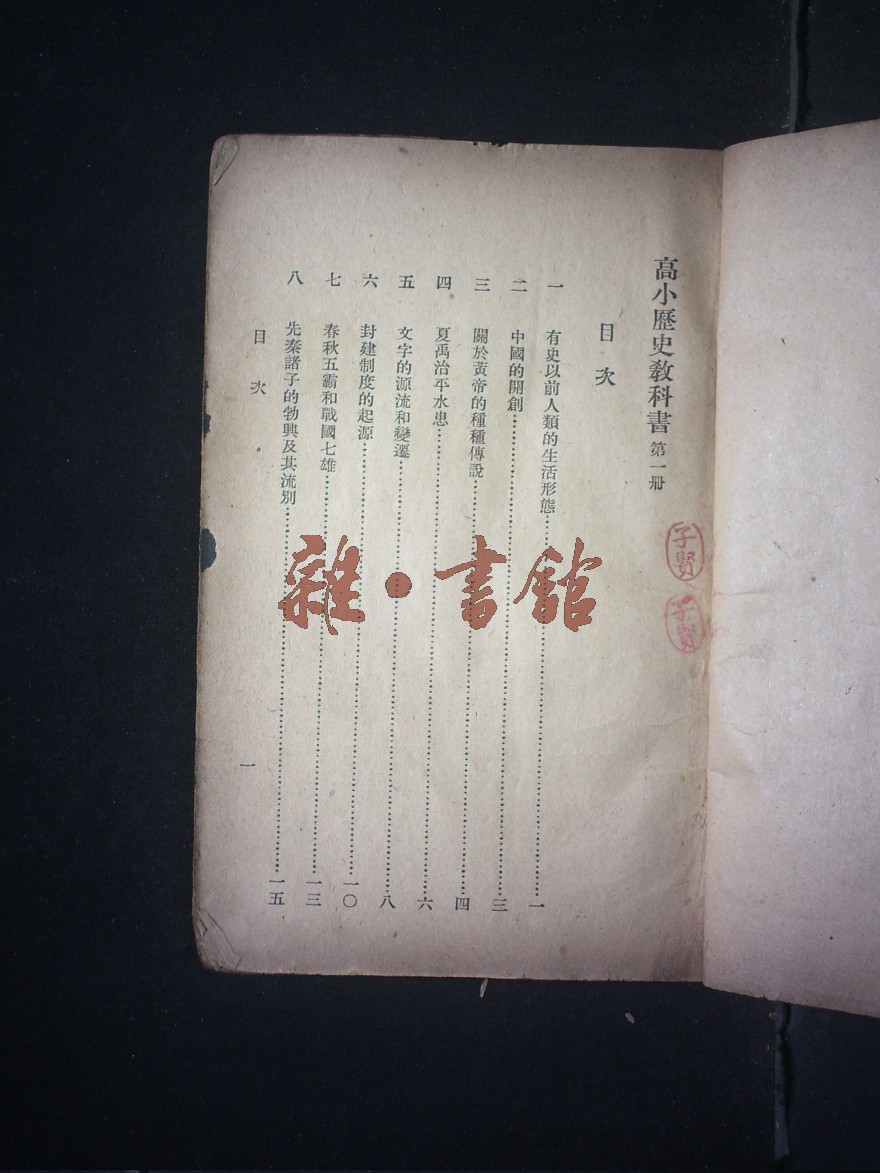 高小歷史教科書 第一册
子賢
子賢
目次
一 有史以前人類的生活形態……一
二 中國的開創……三
三 關於黃帝的種種傳說……四
四 夏禹治平水患……六
五 文字的源流和變遷……八
六 封建制度的起源……一〇
七 春秋五霸和戰國七雄……一三
八 先秦諸子的勃興及其流別……一五
目次
一
雜·書館